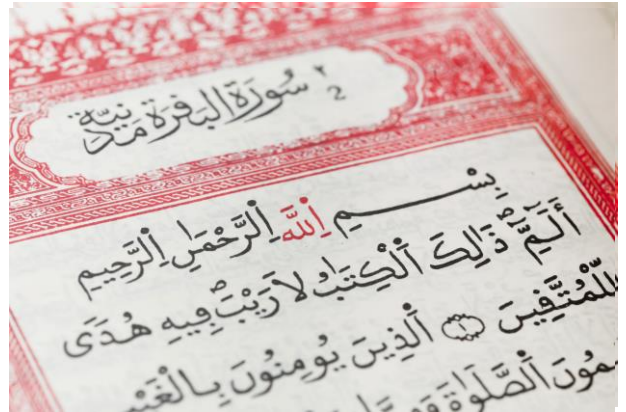 سُورَةُ الْبَقَرَةِ مَدَنِيَّة ٢
2
بِسْمِ اِللَّهِ اِلرَّحْمَٰنِ اِلرَّحِيمِ
أَلَٓمِّٓ ذَٰلِكَ اَلْكِتَٰبُ لَا رَيْبَ فِيهِ هُدًى
لِّلْمُتَّقِينَ ١ اَلذِينَ يُومِنُونَ بِالْغَيْ
مُونَ اَلصَّلَوٰةَ